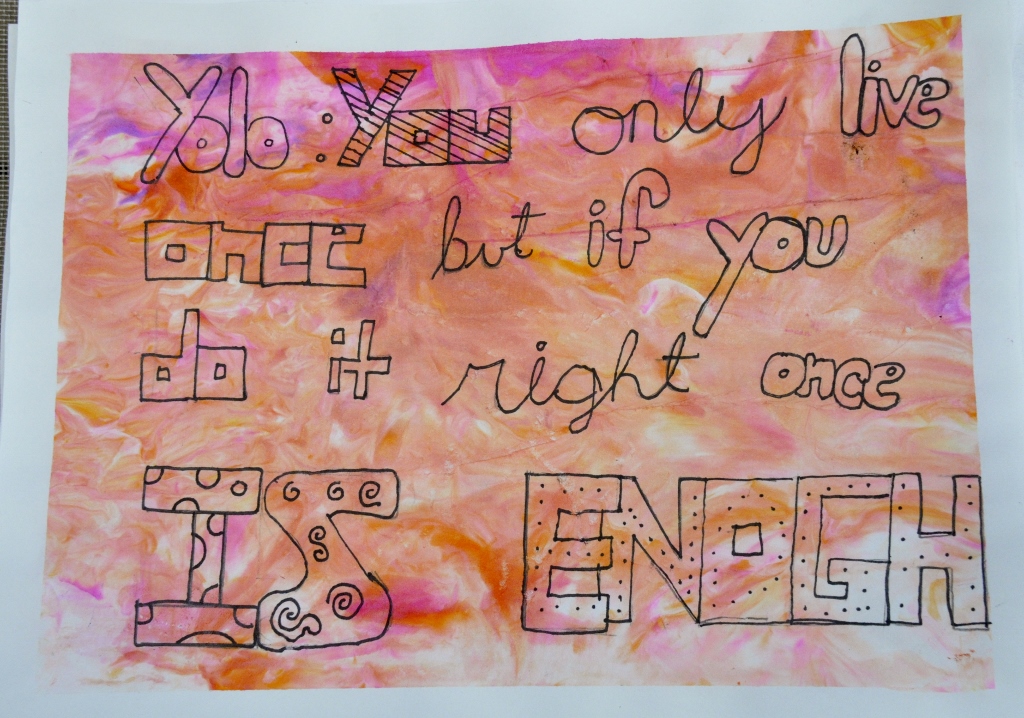 Yolo: You only live
once but if you
do it right once
IS ENOGH